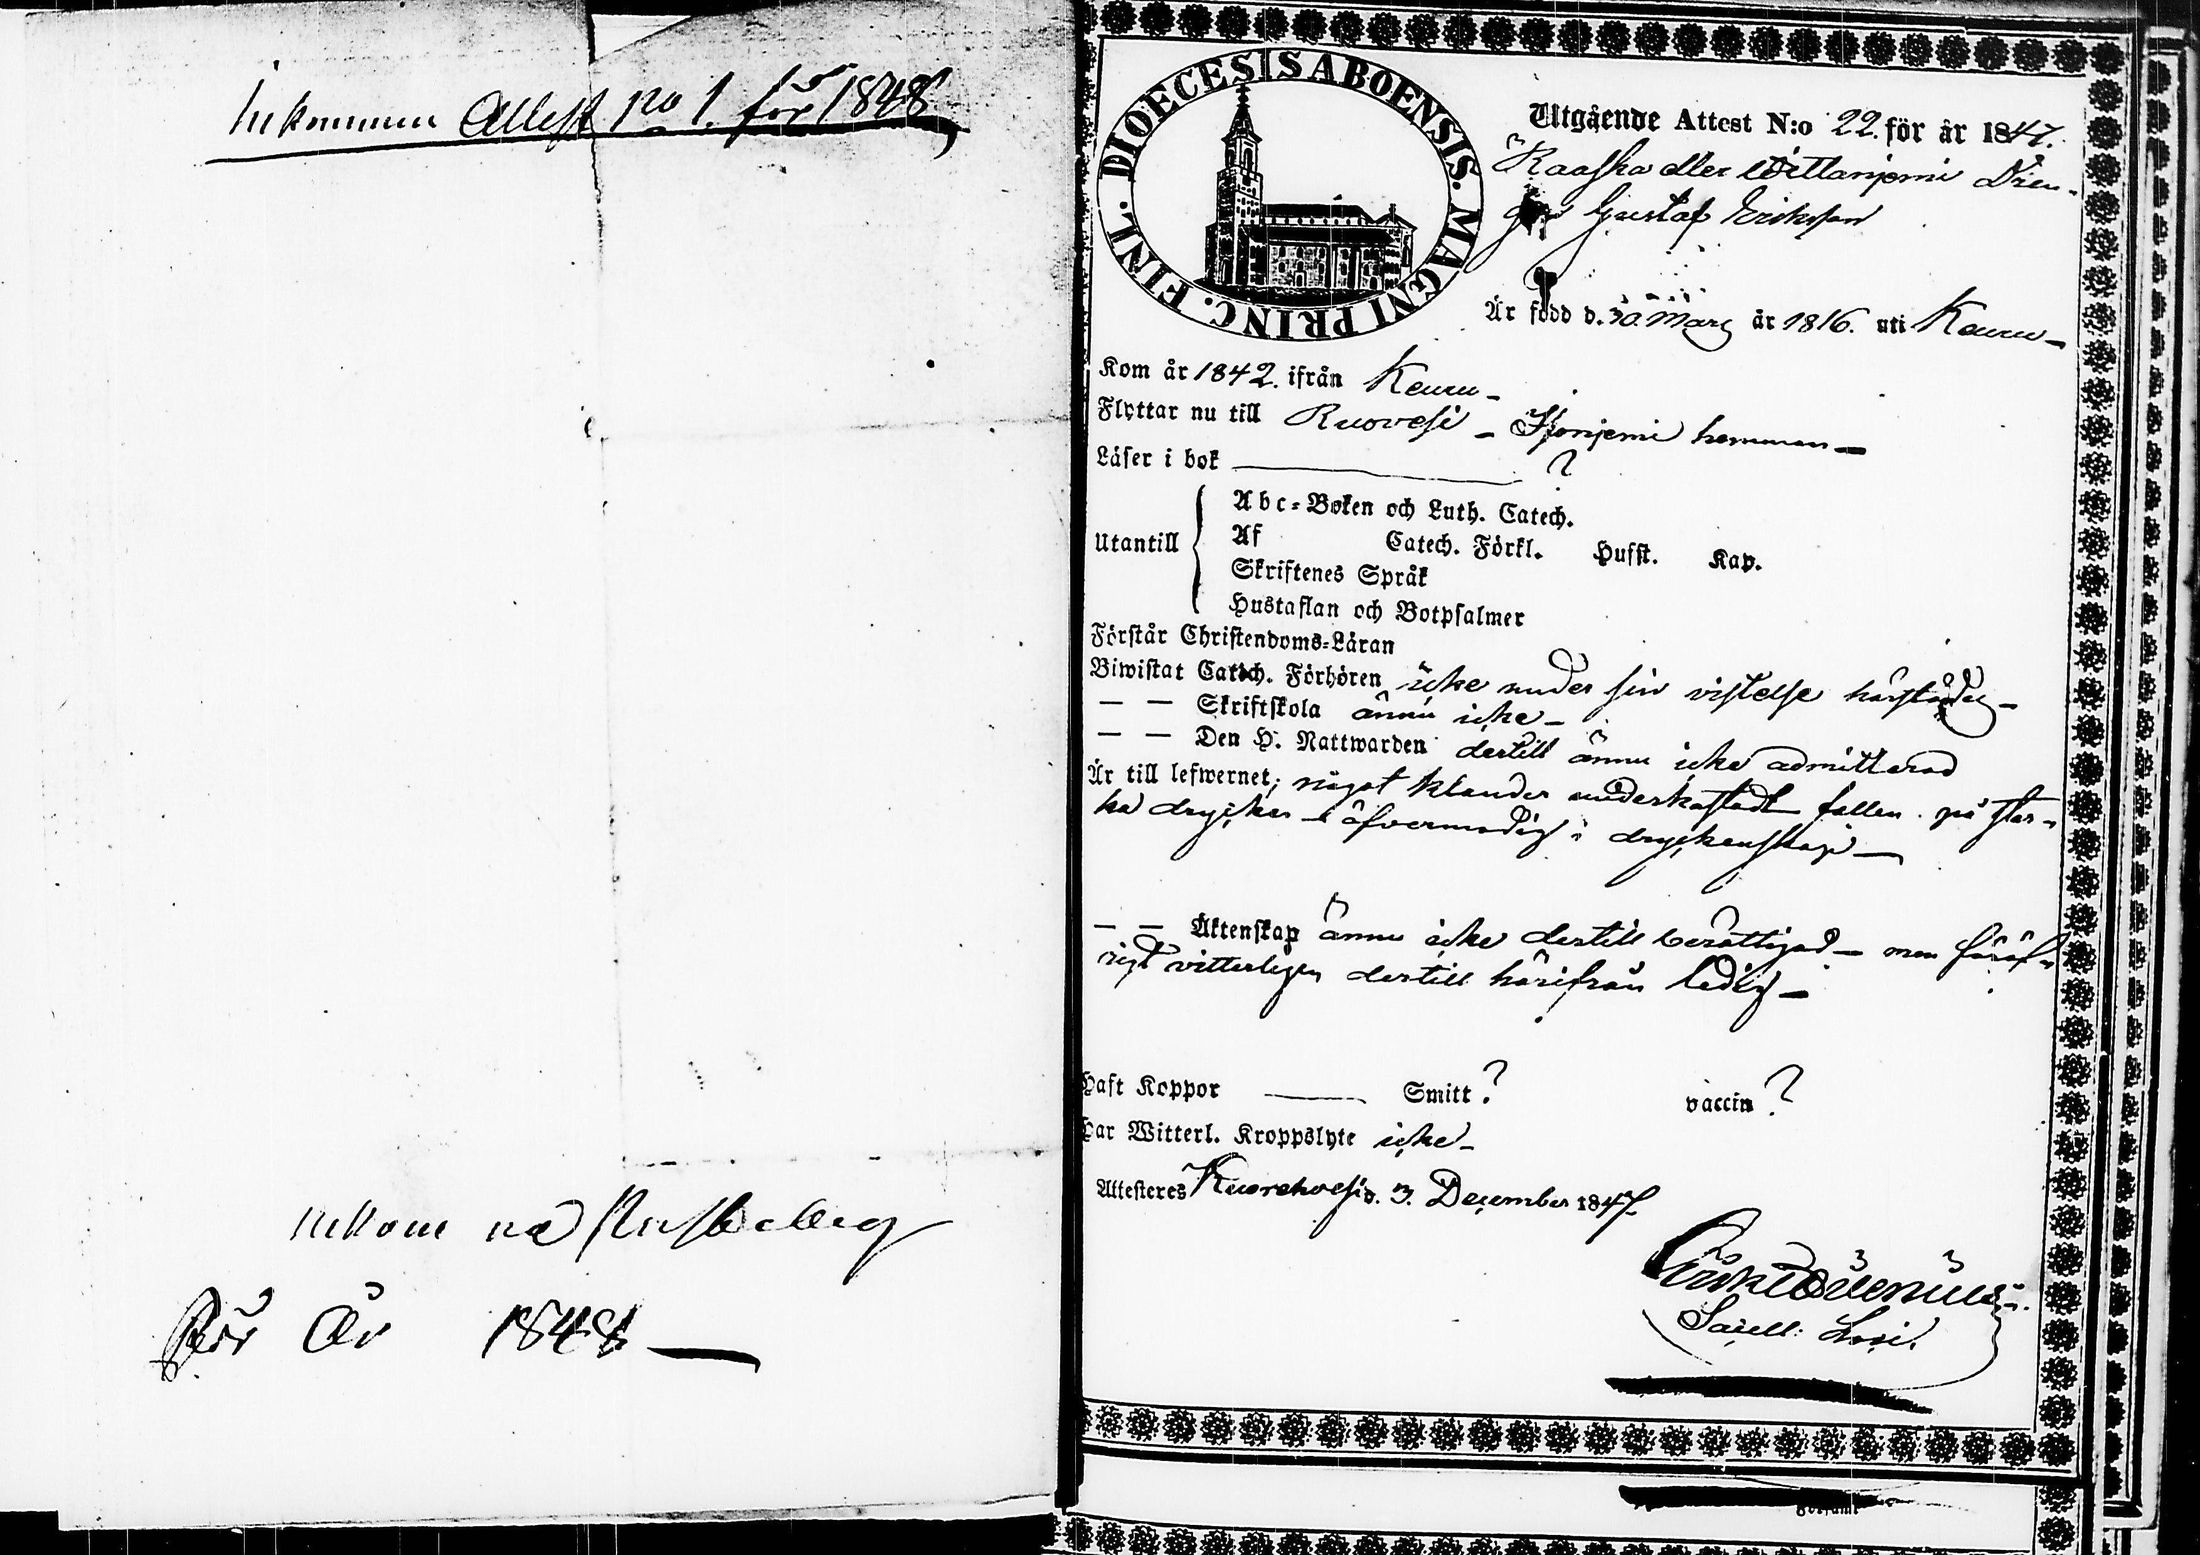 Inkommen Attest no 1. för 1848
inkom
För År 1848
DIOECESIS ABOENSIS. MAGNI PRINC. FINL.
Utgående Attest N:o 22. för år 1847.
Raaska eller Wittanjemi Dren-
gen Gustaf Eriksson
Är född d. 30 Mars år 1816. uti Keuru
Kom år 1842. ifrån Keuru
Flyttar nu till Ruovesi hemman
Läser i bok ?
Utantill
Abc-Boken och Luth. Catech.
Af Catech. Förkl. Husst. Kap.
Skriftenes Språk
Hustaflan och Botpsalmer
Förstår Christendoms-Läran
Biwistat Catech. Förhören icke under sin vistelse härstädes
— — Skriftskola ännu icke
— — Den H. Nattwarden dertill ännu icke admitterad
Är till lefwernet; något klander underkastadt fallen på star-
ka drycker öfvermodig i dryckenskap
— — Äktenskap ännu icke dertill berättigad – men föröf-
rigt vitterligen dertill härifrån ledig
Haft Koppor — Smitt? vaccin?
Har Witterl. Kroppslyte icke
Attesteres Kuorehvesi d. 3. December 1847.
Sacell: